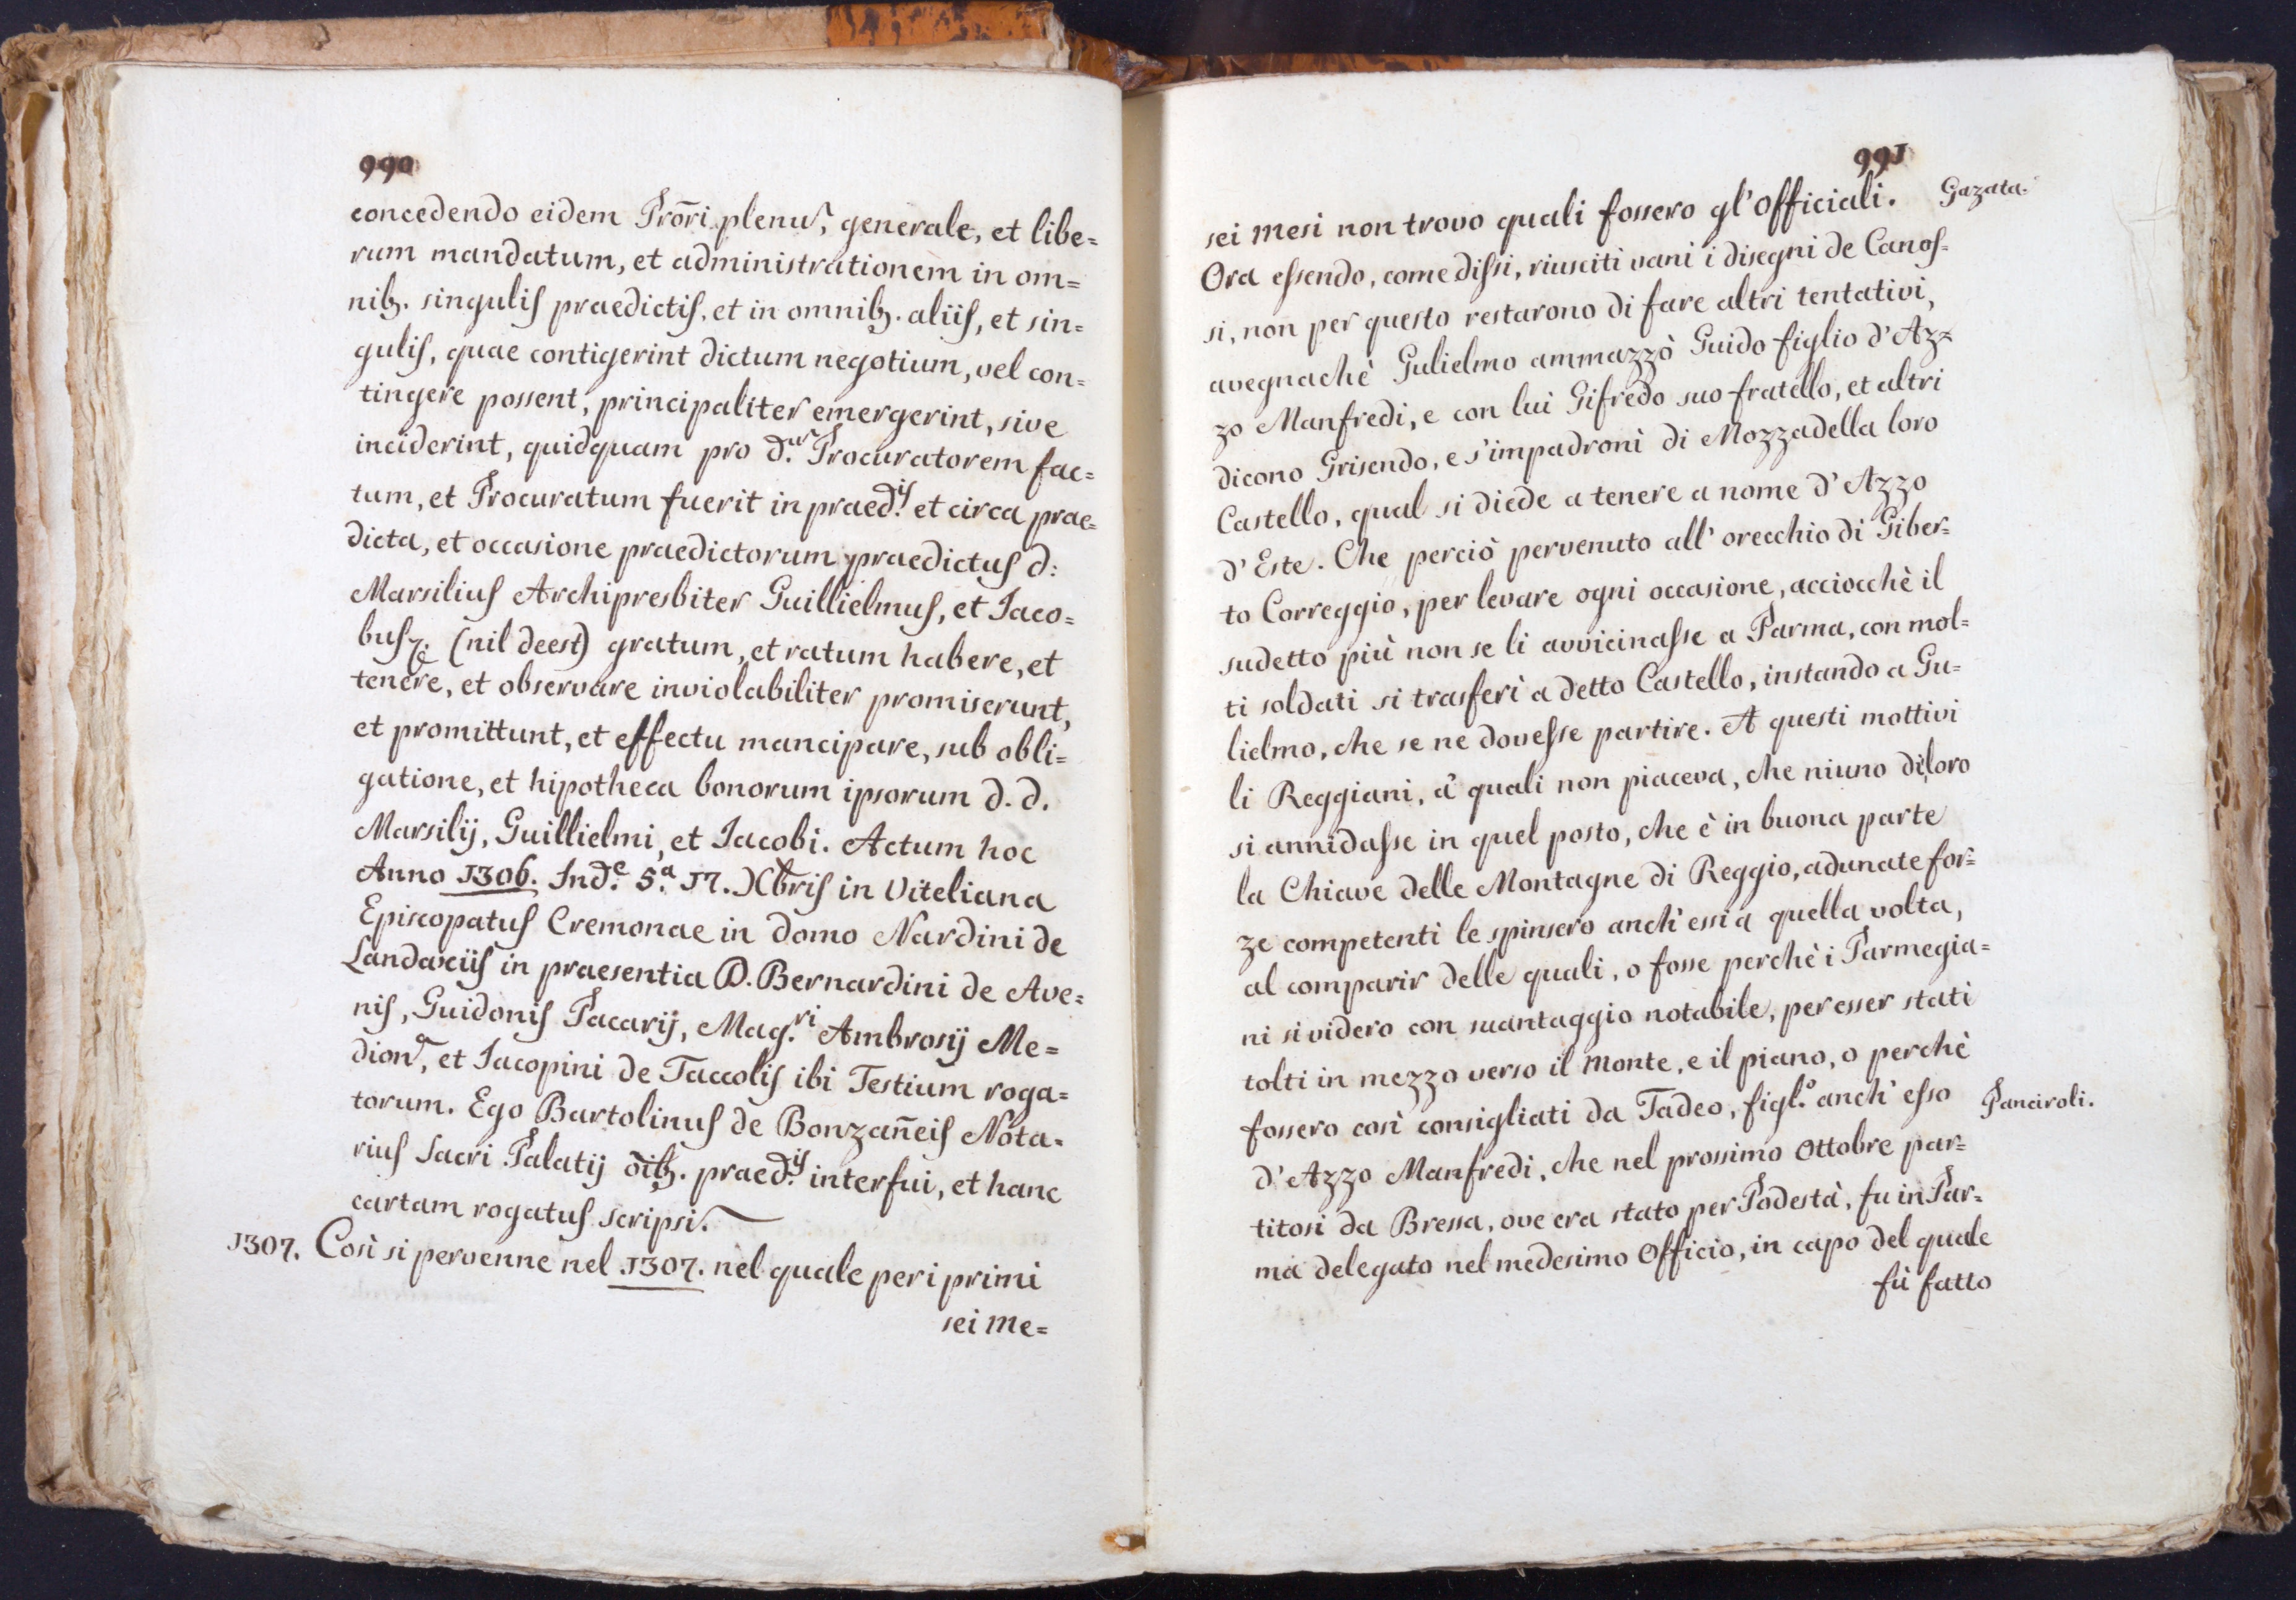 990
concedendo eidem Prōri plenuſ, generale, et libe=
rum mandatum, et administrationem in om=
nib. singulis praedictis, et in omnib. aliis, et sin=
gulis, quae contigerint dictum negotium, vel con=
tingere possent, principaliter emergerint, sive
inciderint, quidquam pro d.um Procuratorem fac=
tum, et Procuratum fuerit in praed.is et circa prae=
dicta, et occasione praedictorum praedictus d:
Marsilius Archipresbiter Guillielmus, et Iaco=
bus &c. (nil deest) gratum, et ratum habere, et
tenere, et observare inviolabiliter promiserunt,
et promittunt, et effectu mancipare, sub obli=
gatione, et hipotheca bonorum ipsorum d. d.
Marsilij, Guillielmi, et Iacobi. Actum hoc
Anno 1306. Ind.e 5.a 17. Xbris in Viteliana
Episcopatus Cremonae in domo Nardini de
Landaveiis in praesentia D. Bernardini de Ave=
nis, Guidonis Pacarij, Mag.ri Ambrosij Me=
dion, et Iacopini de Taccolis ibi Testium roga=
torum. Ego Bartolinus de Bonzan̄eis Nota=
rius Sacri Palatij ōib. praed.is interfui, et hanc
cartam rogatus scripsi.
1307. Così si pervenne nel 1307. nel quale per i primi
sei me=
991
sei mesi non trovo quali fossero gl'officiali. Gazata.
Ora essendo, come dissi, riusciti vani i disegni de Canos=
si, non per questo restarono di fare altri tentativi,
avegnachè Gulielmo ammazzò Guido figlio d'Az=
zo Manfredi, e con lui Gifredo suo fratello, et altri
dicono Grisendo, e s'impadronì di Mozzadella loro
Castello, qual si diede a tenere a nome d'Azzo
d'Este. Che perciò pervenuto all'orecchio di Giber=
to Correggio, per levare ogni occasione, acciocchè il
sudetto più non se li avvicinasse a Parma, con mol=
ti soldati si trasferì a detto Castello, instando a Gu=
lielmo, che se ne dovesse partire. A questi mottivi
li Reggiani, a' quali non piaceva, che niuno di loro
si annidasse in quel posto, che è in buona parte
la Chiave delle Montagne di Reggio, adunate for=
ze competenti le spinsero anch'essi a quella volta,
al comparir delle quali, o fosse perchè i Parmegia=
ni si videro con suantaggio notabile, per esser stati
tolti in mezzo verso il monte, e il piano, o perchè
fossero così consigliati da Tadeo, figl.o anch'esso Panciroli.
d'Azzo Manfredi, che nel prossimo Ottobre par=
titosi da Bressa, ove era stato per Podestà, fu in Par=
ma delegato nel medesimo Officio, in capo del quale
fù fatto